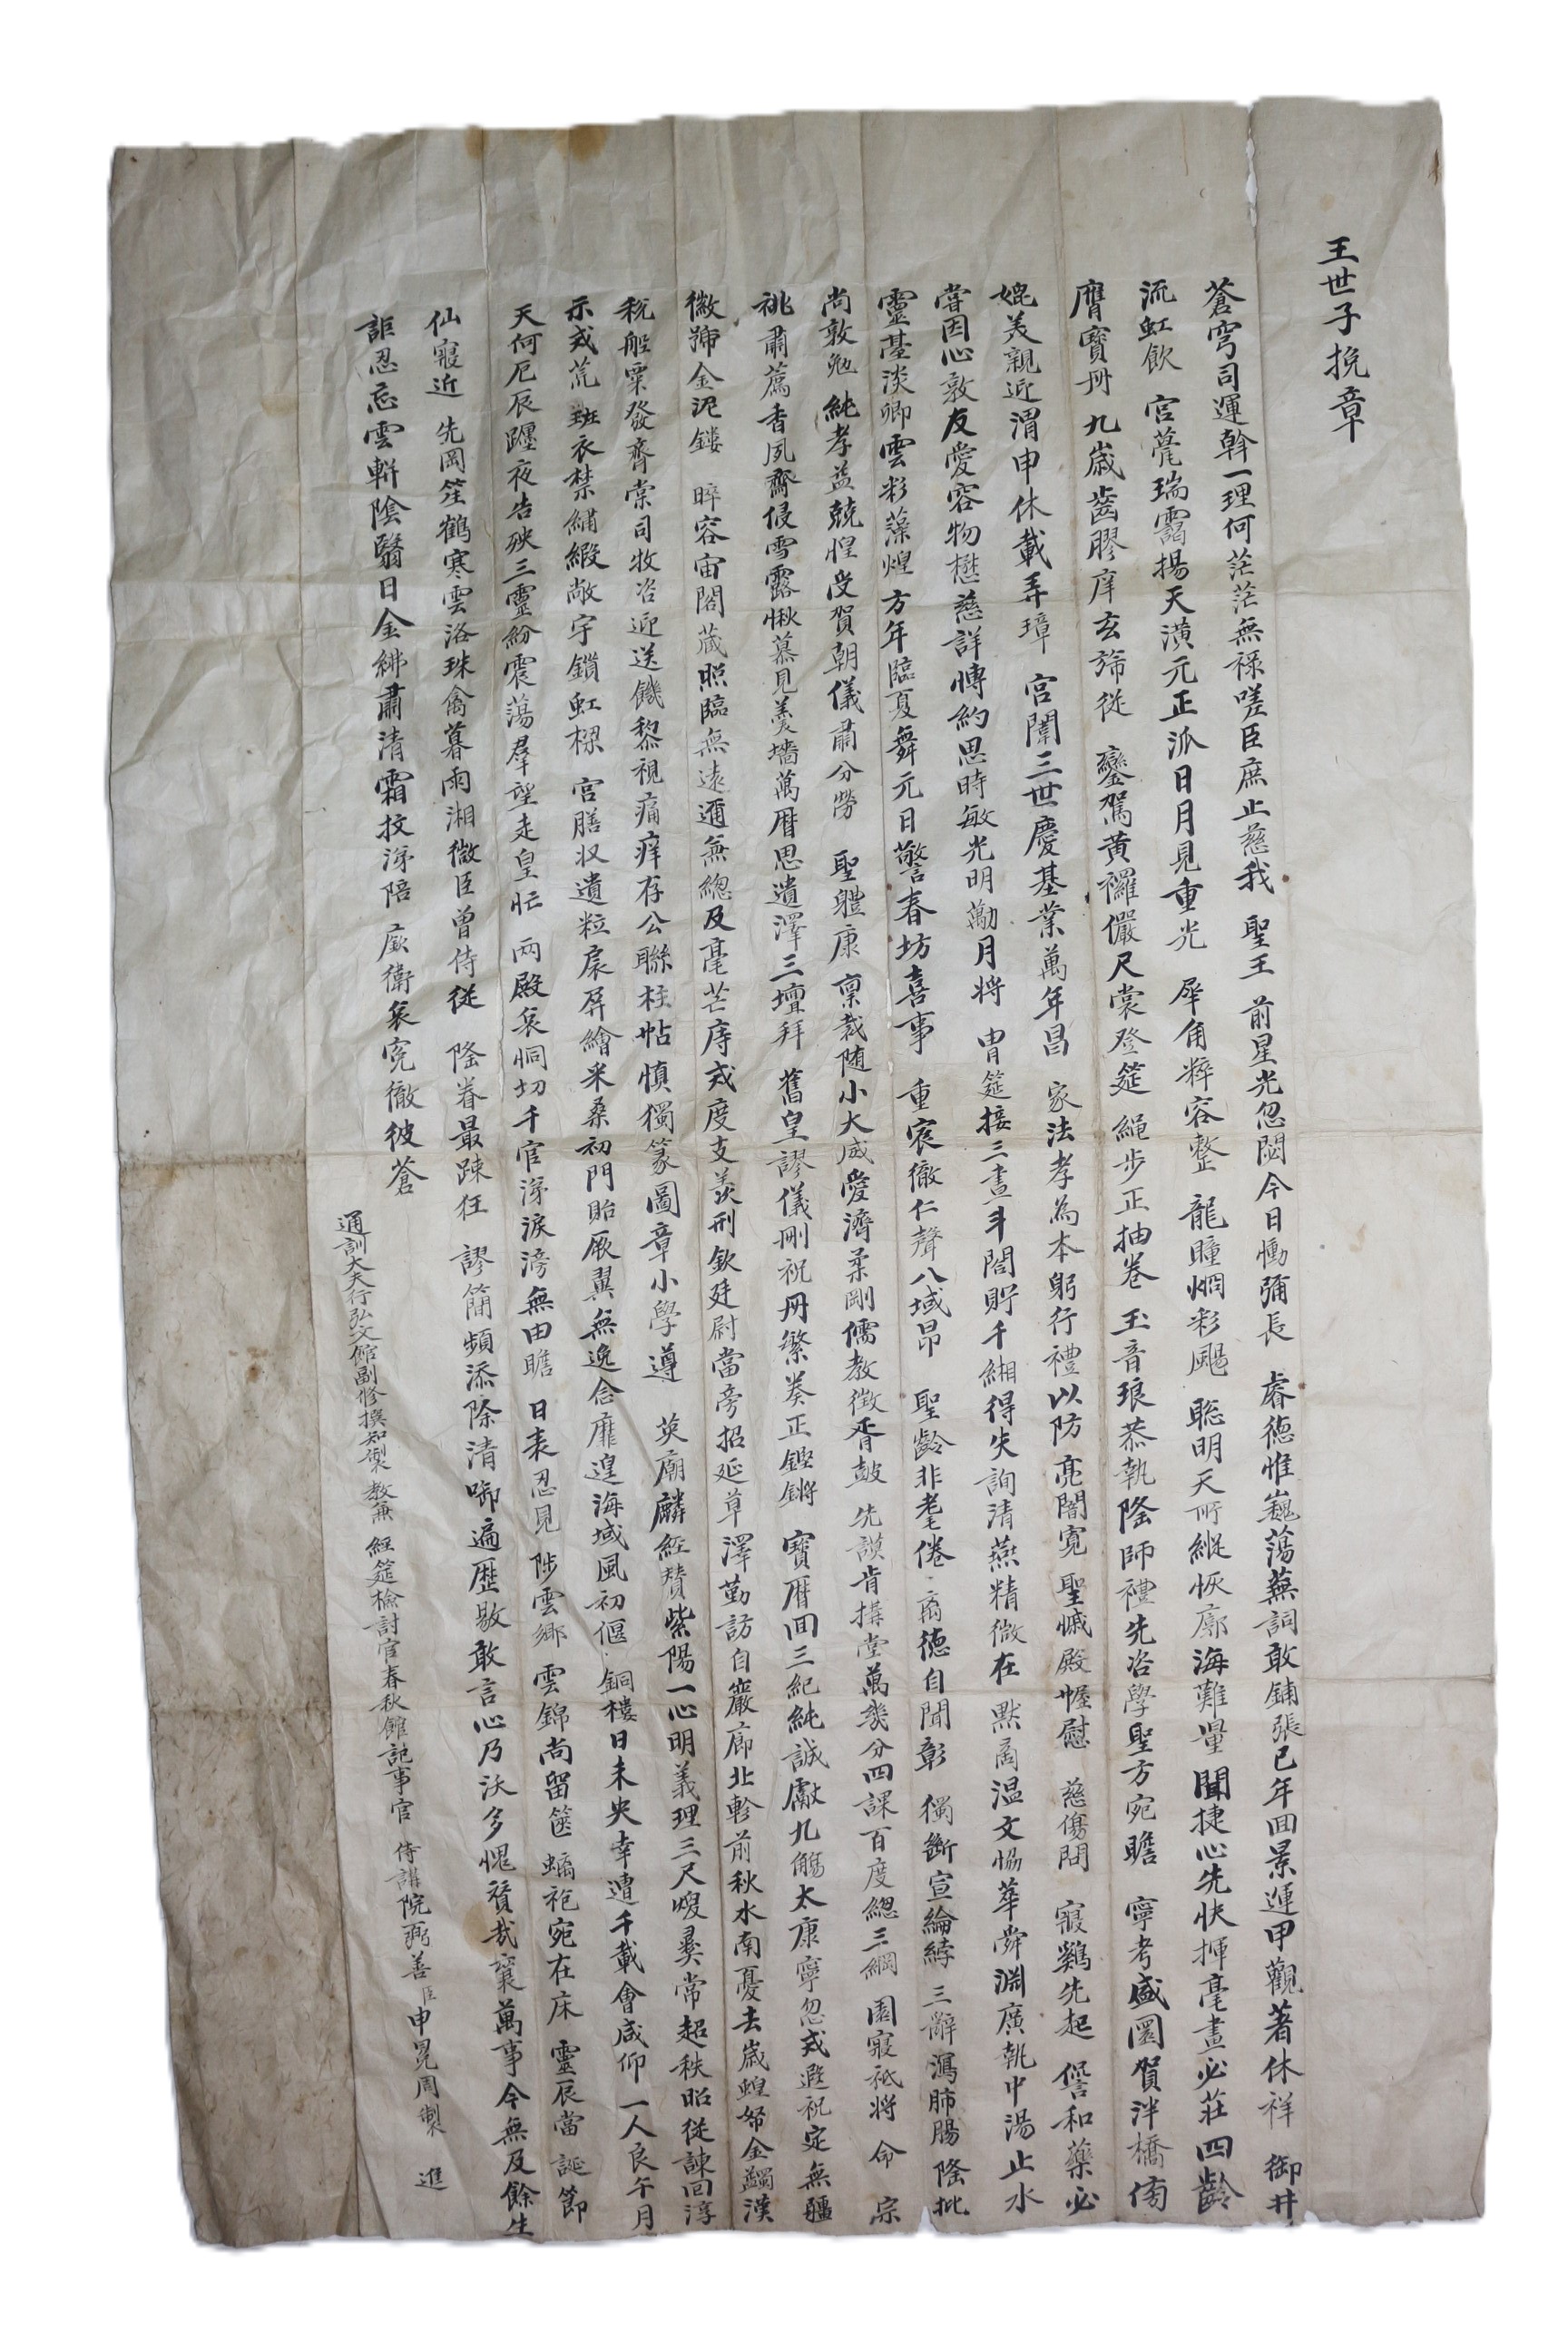 王世子挽章
蒼穹司運斡一理何茫茫無祿嗟臣庶止慈我 聖王 前星光忽閟今日慟彌長 睿德惟巍蕩蕪詞敢鋪張巳年回景運甲觀著休祥 御井
流虹飲 宮甍瑞靄揚天潢元正派日月見重光 犀角粹容整 龍瞳炯彩颺 聡明天所縱恢廓海難量聞捷心先快揮毫畫必莊四齡
膺寶冊 九歲齒膠庠玄旂從 鑾駕黃襹儼尺裳登筵 繩步正抽卷 玉音琅恭執隆師禮先咨學聖方宛瞻 寧考盛圜賀泮橋傍
媲美親迎渭申休載弄璋 宮闈三世慶基業萬年昌 家法孝為本躬行禮以防 亮闇寬 聖慽殿幄慰 慈傷問 寢鷄先起 甞和藥必
甞因心敦友愛容物懋慈詳慱約思時敏光明勵月將 冑筵接三晝斗閤貯千緗得失詢清燕精微在 默啇温文恊華舜淵廣執中湯止水
靈基淡卿雲彩藻煌方年臨夏舞元日警春坊喜事 重宸徹仁聲八域昂 聖齡非耄倦 啇德自聞彰 獨斷宣綸綍 三辭瀉肺膓 隆批
尚敦勉 純孝益兢惶受賀朝儀肅分勞 聖軆康 禀裁随小大威愛濟柔剛儒教徵胥皷 先謨肯搆堂萬幾分四課百度總三綱 園寢祗將 命 宗
祧肅薦香夙齋侵雪露愀慕見羹墻萬曆思遺澤三壇拜 舊皇謬儀刪祝冊繁奏正鏗鏘 寶曆回三紀純誠獻九觴太康寧忽或遐祝定無疆
徽號金泥鏤 睟容宙閤藏照臨無遠邇無總及毫芒庤或度支羨刑欽廷尉當旁招延草澤勤訪自巖廊北軫前秋水南憂去歲蝗帑金蠲漢
稅船粟發齊棠司牧咨迎送饑黎視痛痒存公聯柱帖慎獨篆圖章小學遵 英廟麟經賛紫陽一心明義理三尺煥彛常超秩昭從諫回淳
示或荒 班衣禁繡緞敞宇鎖虹樑 宮膳収遺粒扆屏繪采桑初門貽厥翼無逸念靡遑海域風初偃 銅樓日未央幸遭千載會咸仰 一人良午月
天何厄辰躔夜告殃三靈紛震蕩羣望走皇忙 两殿哀恫切千官涕淚滂無由瞻 日表忍見 陟雲鄉 雲錦尚留篋 蟠袍宛在床 靈辰當 誕節
仙寢近 先岡笙鶴寒雲洛珠禽暮雨湘微臣曾侍從 隆眷最踈狂 謬簡頻添除清啣遍歷敭敢言心乃沃多愧贊哉襄萬事今無及餘生
詎忍忘雲輧陰翳日金紼肅清霜抆涕陪 厥衛哀宛徹彼蒼
通訓大夫行弘文館副修撰知製 教兼 經筵檢討官春秋館記事官 侍講院弼善臣申冕周製 進